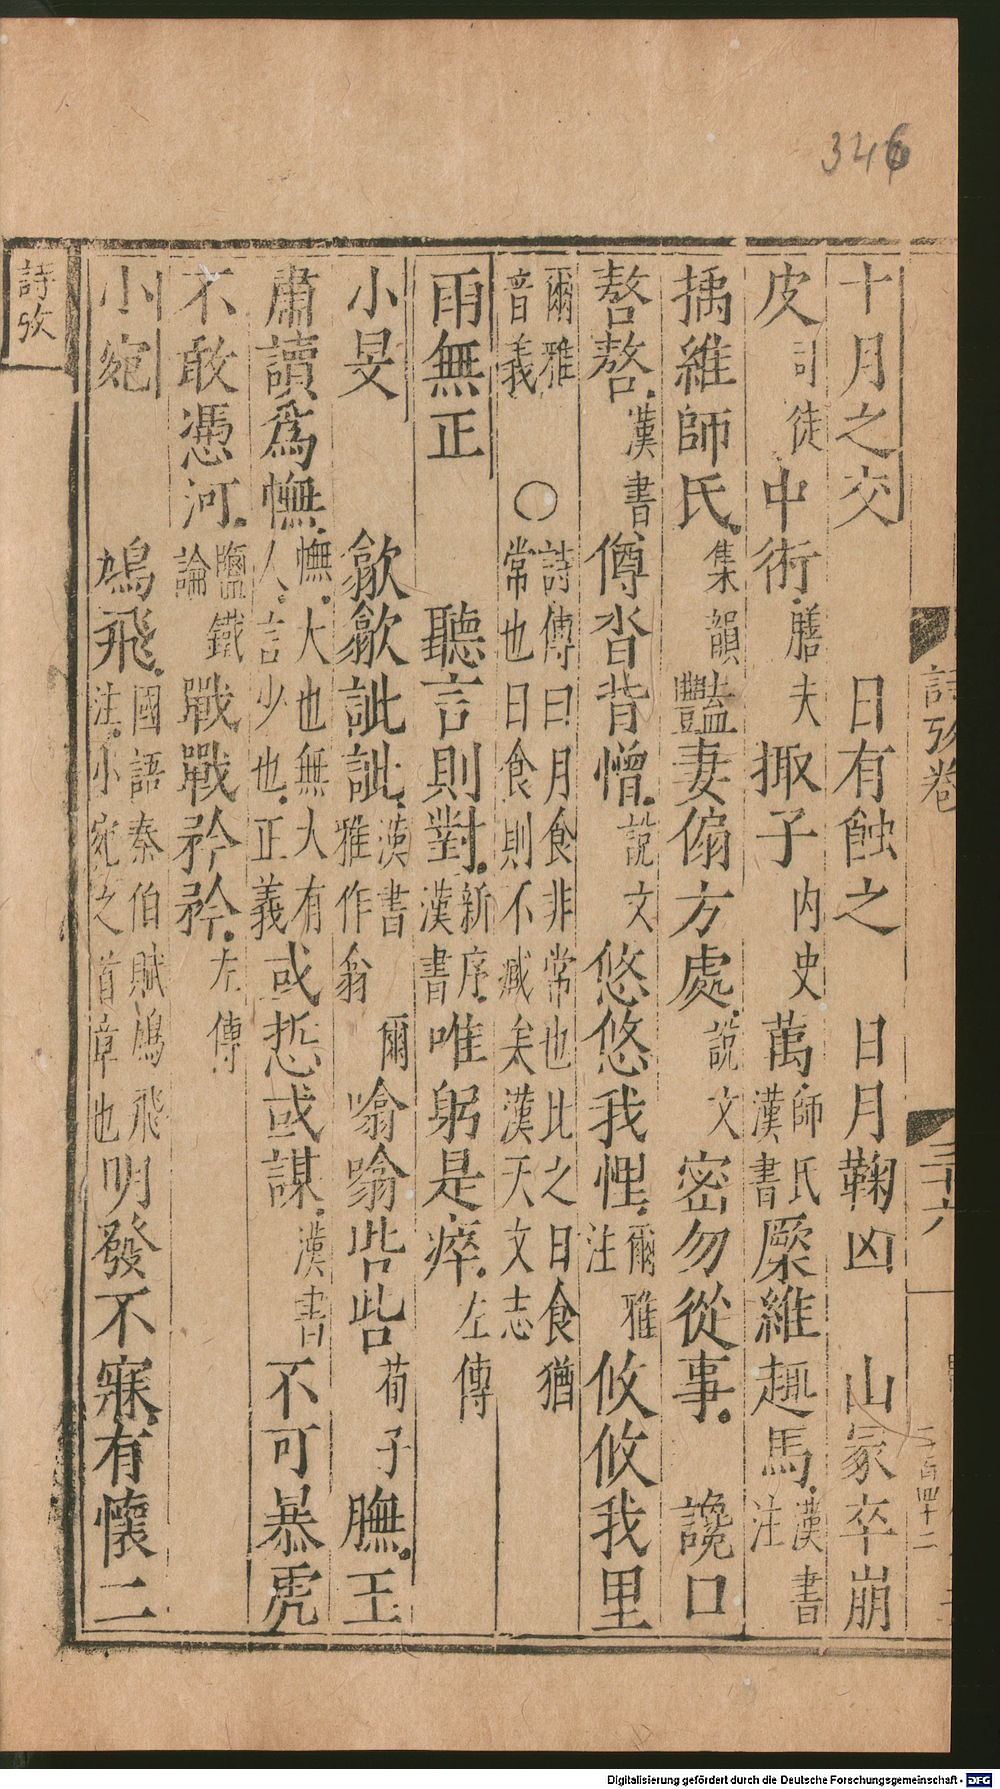 346
詩攷卷
二十六
二百四十二
十月之交　日有蝕之　日月鞠凶　山冢卒崩
皮司徒中術膳夫掫子内史萬師氏漢書㮼維趣馬漢書注
㩻維師氏集韻豔妻傓方處說文密勿從事　讒口
嗸嗸漢書僔沓背憎說文　悠悠我悝爾雅注　攸攸我里
爾雅音義　○詩傳曰月食非常也比之日食猶常也日食則不臧矣漢天文志
雨無正　聽言則對新序漢書唯躬是瘁左傳
小旻　歙歙訿訿漢書雅作翁　爾噏噏呰呰荀子　膴王
肅讀爲幠幠大也無大有人言少也正義或悊或謀漢書　不可暴虎
不敢憑河鹽鐵論　戰戰矜矜左傳
小宛　鳩飛國語秦伯賦鳩飛注小宛之首章也　明發不寐有懷二
詩攷
Digitalisierung gefördert durch die Deutsche Forschungsgemeinschaft - DFG